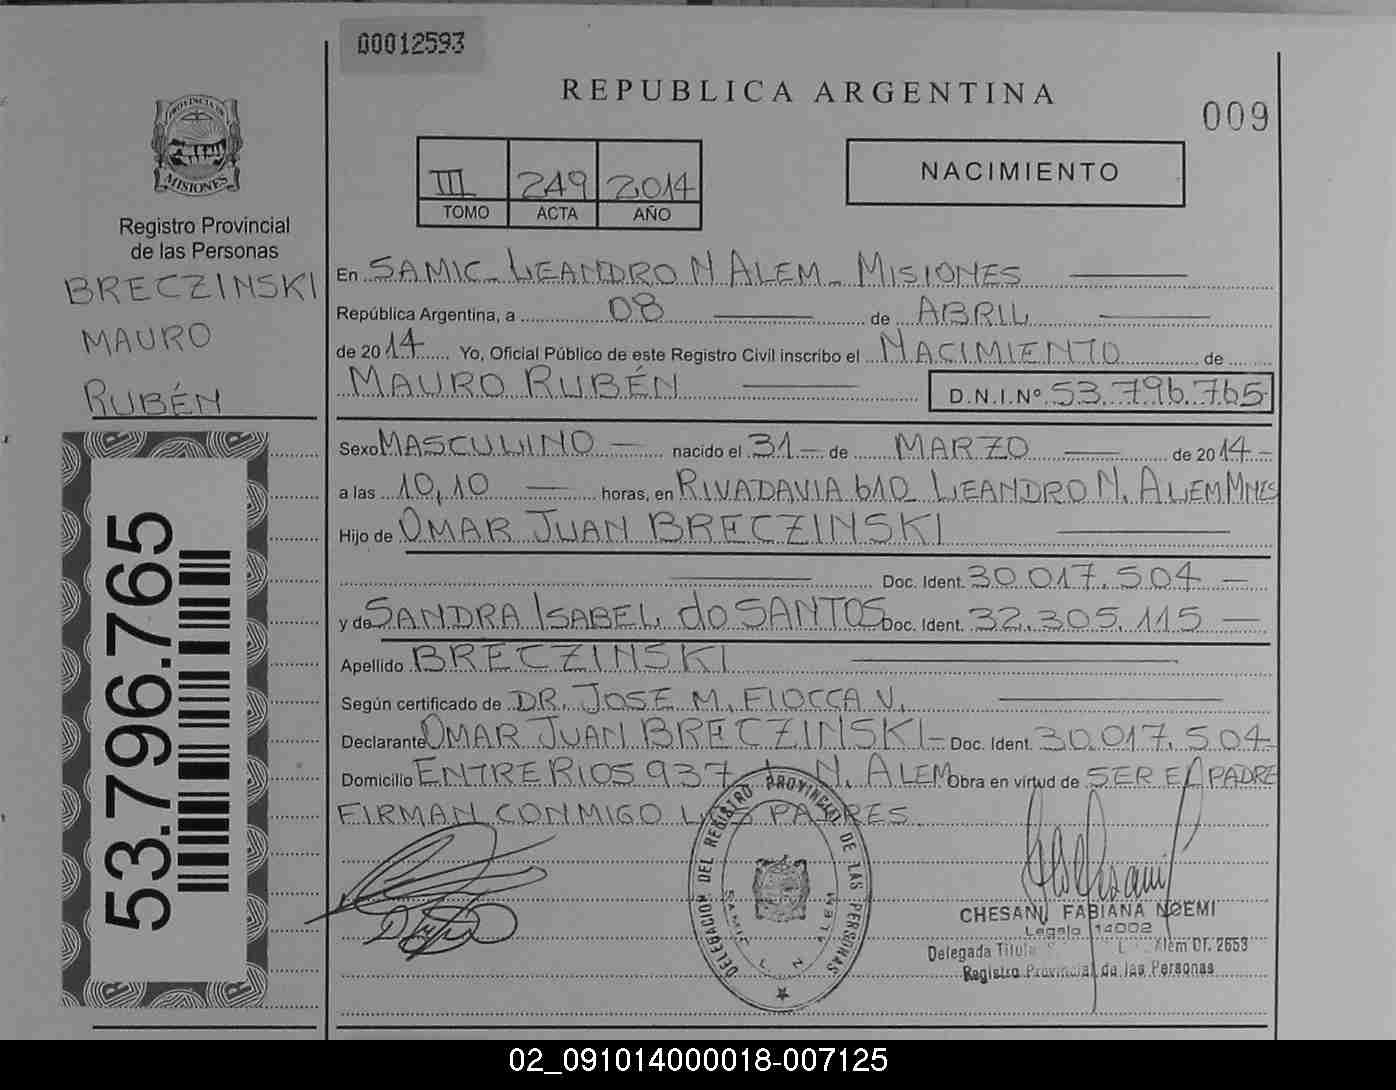 00012593
REPUBLICA ARGENTINA
009
PROVINCIA DE
MISIONES
Registro Provincial
de las Personas
BRECZINSKI
MAURO
RUBÉN
53.796.765
III 249 2014
TOMO ACTA AÑO
NACIMIENTO
En SAMIC - LEANDRO N ALEM - MISIONES
República Argentina, a 08 de ABRIL
de 2014 Yo, Oficial Público de este Registro Civil inscribo el NACIMIENTO de
MAURO RUBÉN D.N.I.Nº 53.796.765
Sexo MASCULINO — nacido el 31 — de MARZO — de 2014 —
a las 10,10 — horas, en RIVADAVIA 610 LEANDRO N. ALEM MNES
Hijo de OMAR JUAN BRECZINSKI
Doc. Ident. 30.017.504 —
y de SANDRA ISABEL do SANTOS Doc. Ident. 32.305.115 —
Apellido BRECZINSKI
Según certificado de DR. JOSE M. FIOCCA V.
Declarante OMAR JUAN BRECZINSKI - Doc. Ident. 30.017.504 -
Domicilio ENTRE RIOS 937 L. N. ALEM Obra en virtud de SER EL PADRE
FIRMAN CONMIGO LOS PADRES
DELEGACION DEL REGISTRO PROVINCIAL DE LAS PERSONAS
SAMIC L. N. ALEM
CHESANI, FABIANA NOEMI
Legajo 14002
Delegada Titular L. Alem Of. 2653
Registro Provincial de las Personas
02_091014000018-007125